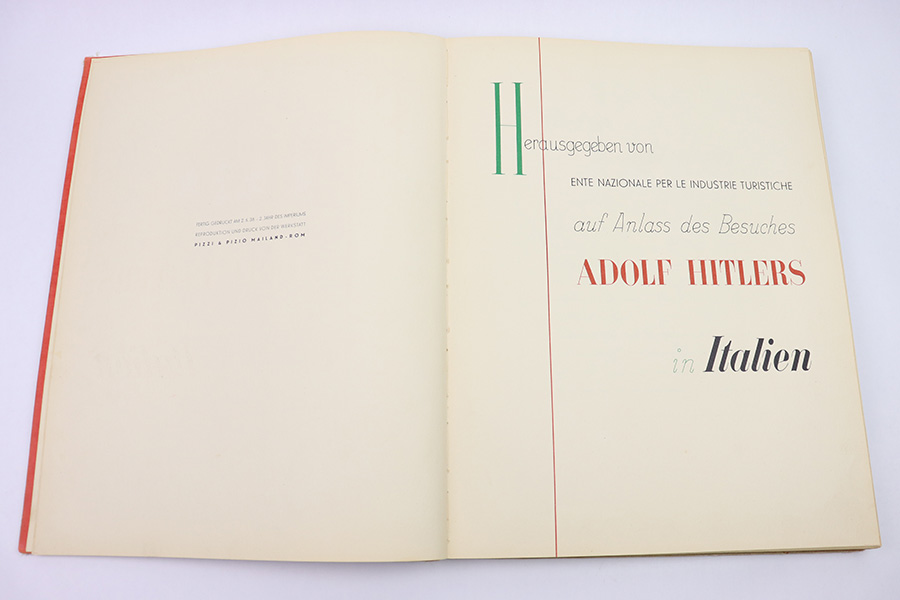 FERTIG GEDRUCKT AM 2. 5. 38 - 2. JAHR DES IMPERIUMS
REPRODUKTION UND DRUCK VON DER WERKSTATT
PIZZI & PIZIO MAILAND-ROM
Herausgegeben von
ENTE NAZIONALE PER LE INDUSTRIE TURISTICHE
auf Anlass des Besuches
ADOLF HITLERS
in Italien